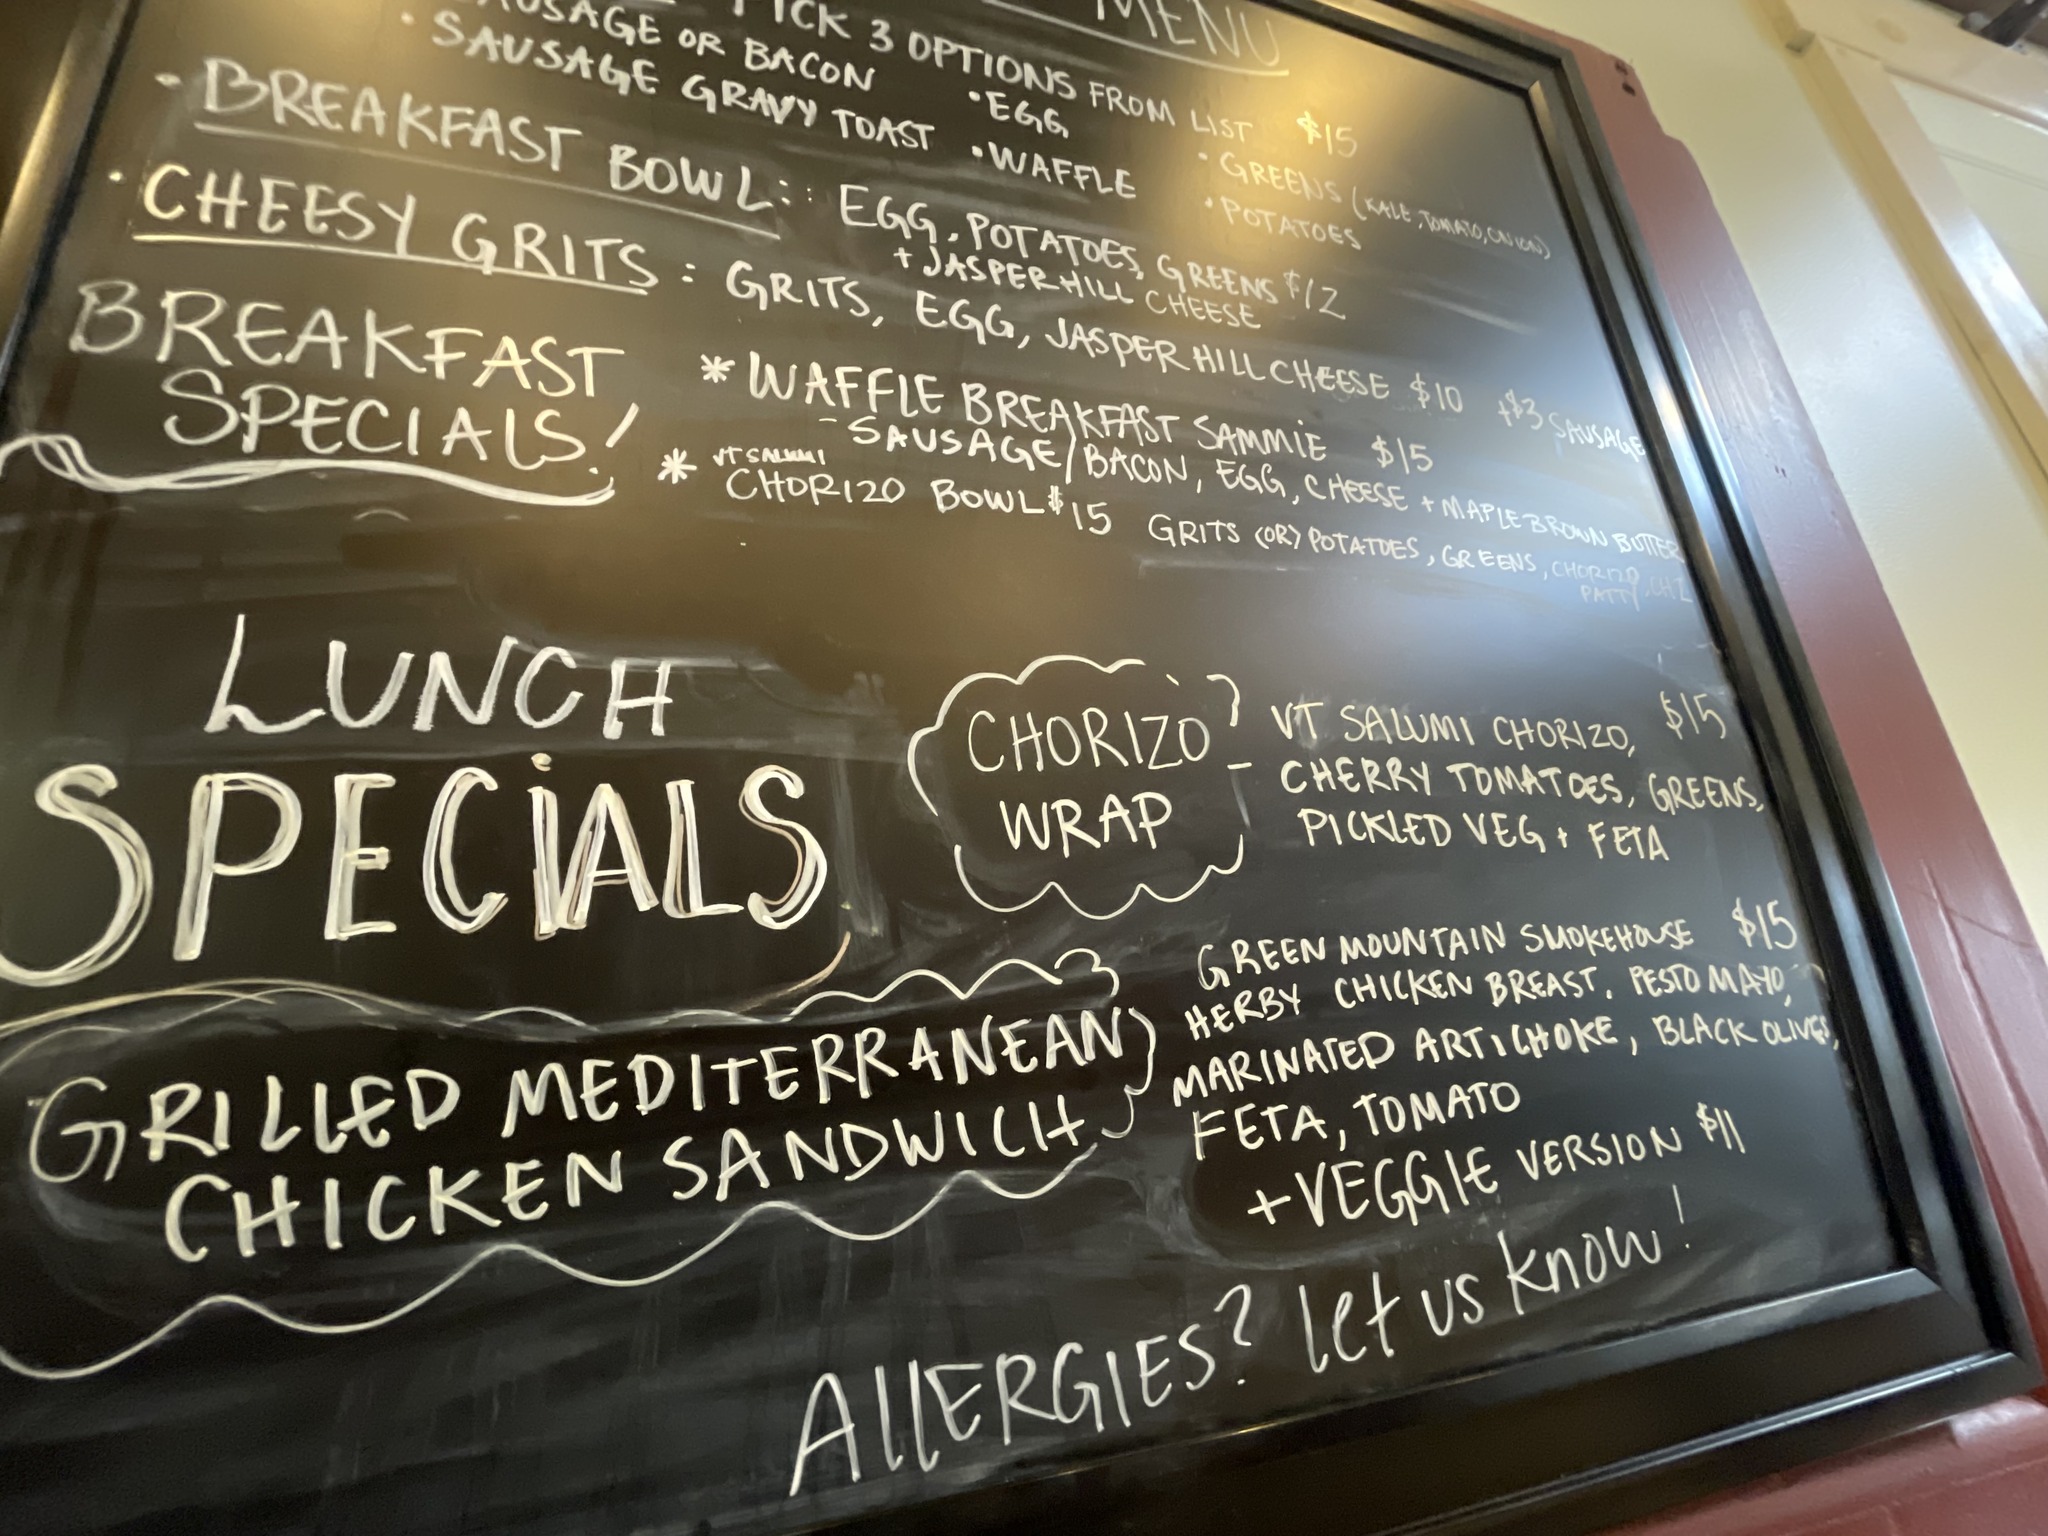 MENU
PICK 3 OPTIONS FROM LIST $15
SAUSAGE OR BACON • EGG • GREENS (KALE, TOMATO, ONION)
• SAUSAGE GRAVY TOAST • WAFFLE • POTATOES
• BREAKFAST BOWL: EGG, POTATOES, GREENS $12
+ JASPER HILL CHEESE
• CHEESY GRITS: GRITS, EGG, JASPER HILL CHEESE $10 +$3 SAUSAGE
BREAKFAST
SPECIALS!
* WAFFLE BREAKFAST SAMMIE $15
- SAUSAGE/BACON, EGG, CHEESE + MAPLE BROWN BUTTER
* VT SALUMI
CHORIZO BOWL $15 GRITS (OR) POTATOES, GREENS, CHORIZO
PATTY, CHZ
LUNCH
SPECIALS
CHORIZO
WRAP
- VT SALUMI CHORIZO, $15
CHERRY TOMATOES, GREENS,
PICKLED VEG + FETA
GRILLED MEDITERRANEAN
CHICKEN SANDWICH
GREEN MOUNTAIN SMOKEHOUSE $15
HERBY CHICKEN BREAST. PESTO MAYO,
MARINATED ARTICHOKE, BLACK OLIVES,
FETA, TOMATO
+ VEGGIE VERSION $11
ALLERGIES? Let us know!